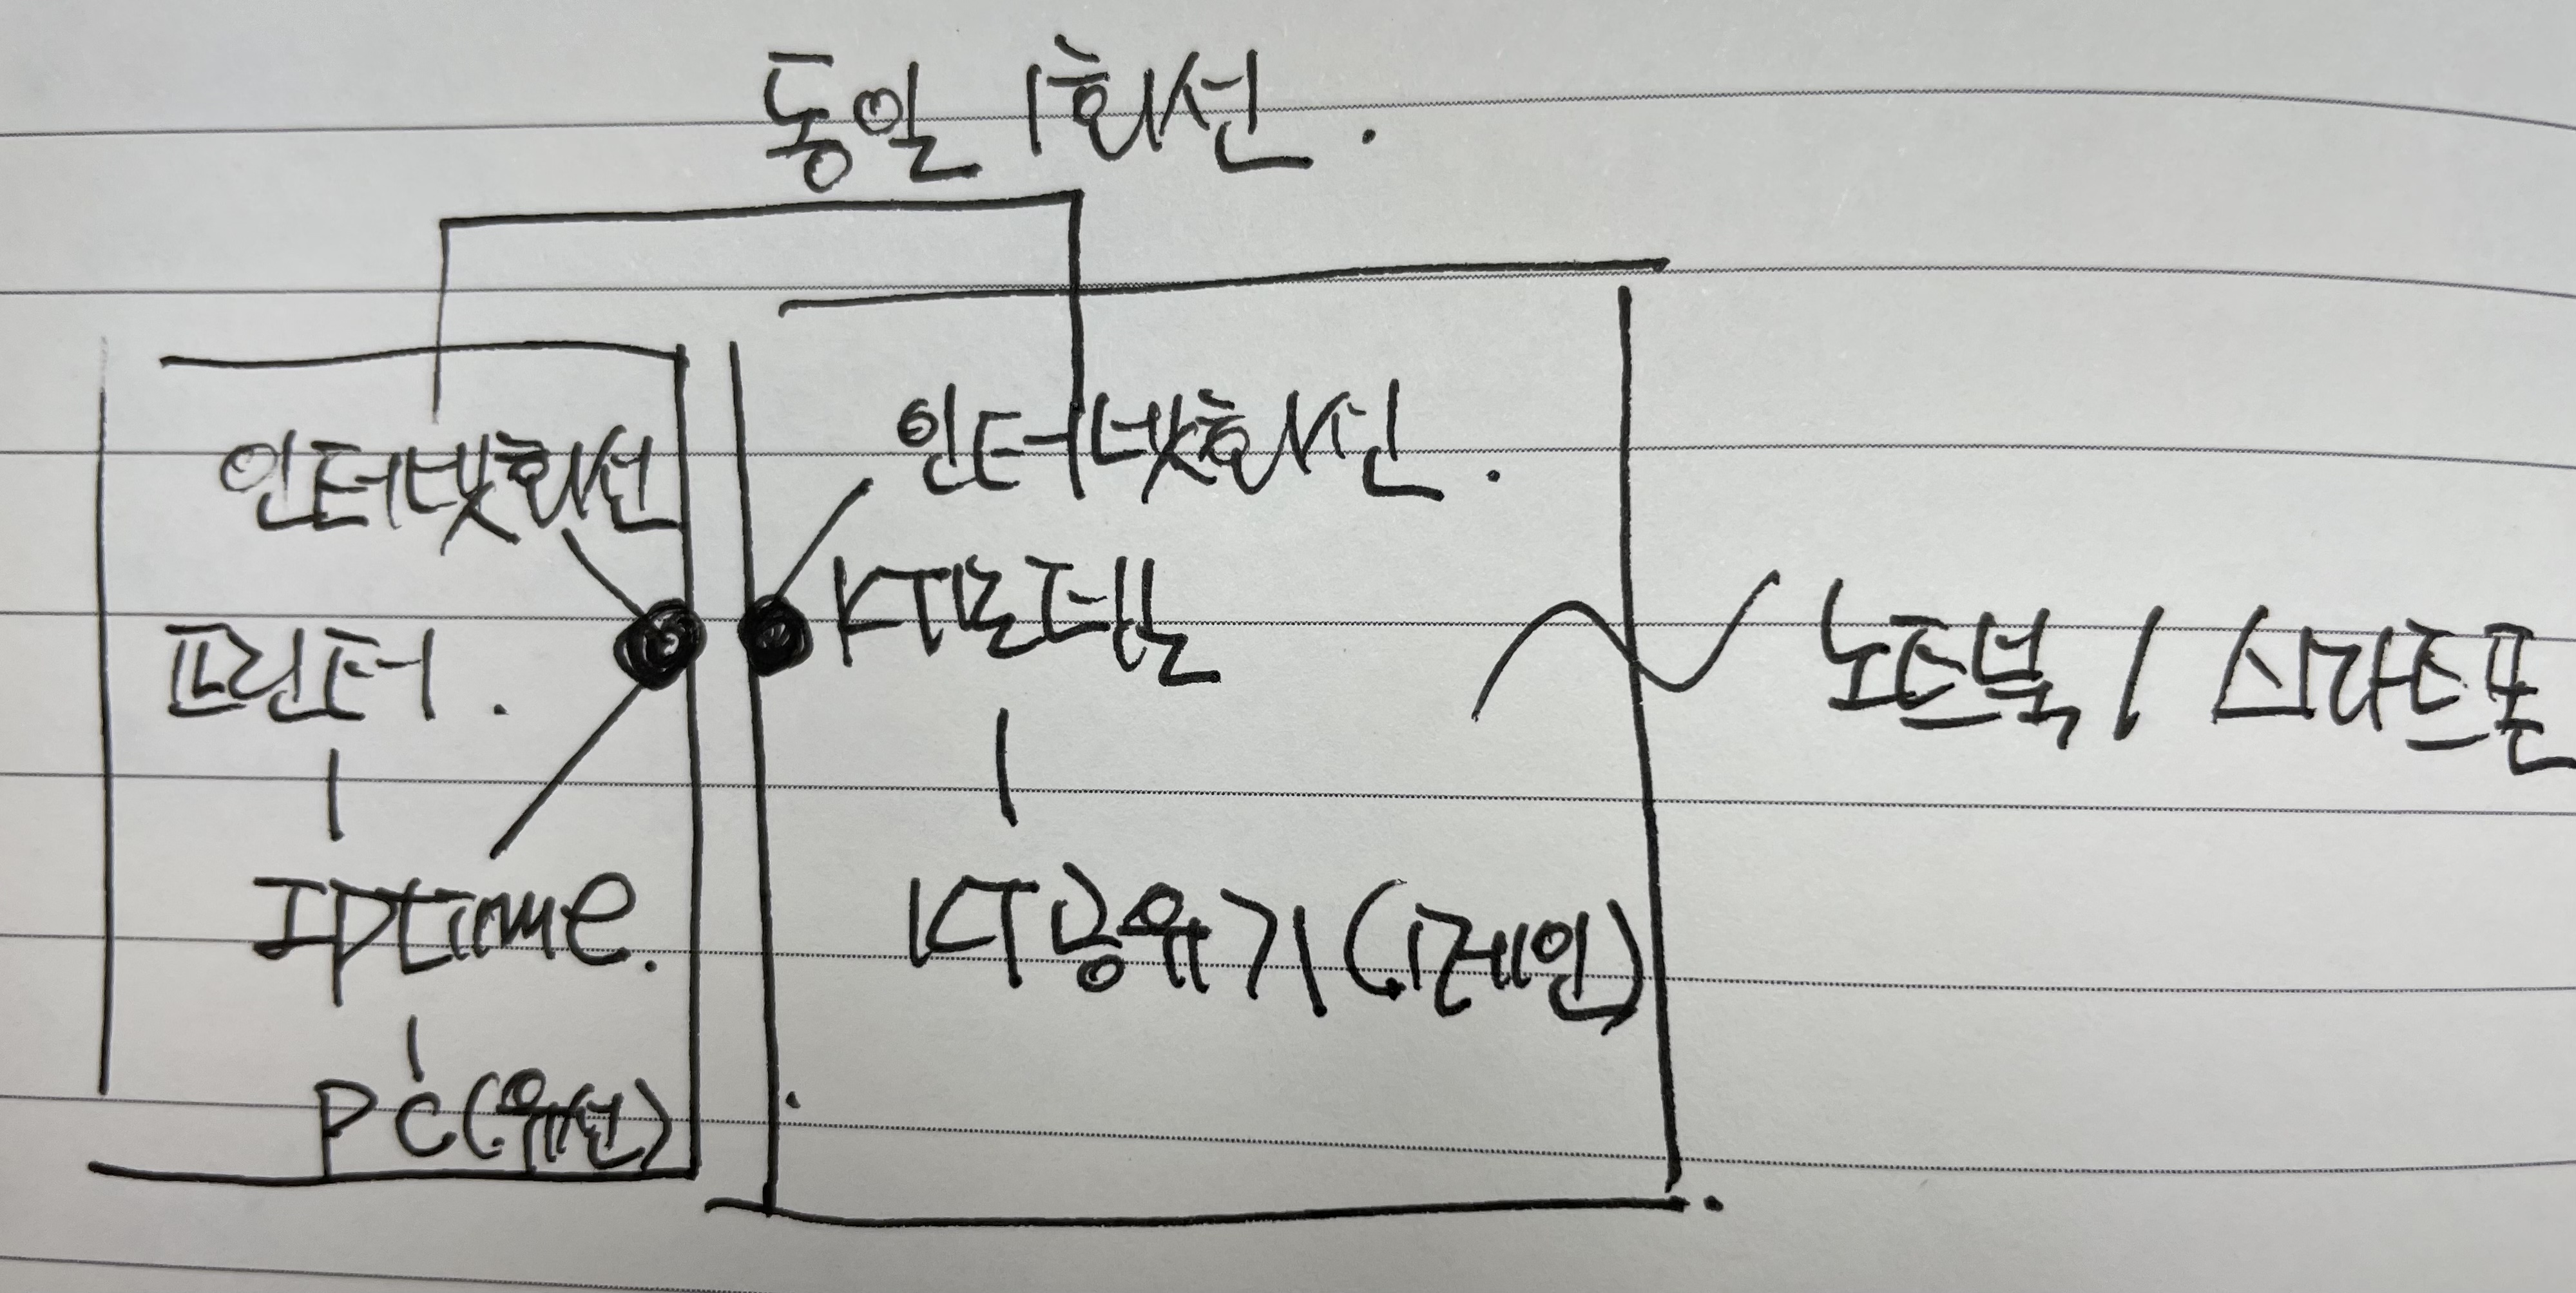 동일 1회선.
인터넷회선
인터넷회선.
프린터.
KT모뎀
노트북 / 스마트폰
Iptime.
KT공유기(1레인)
PC(유선)